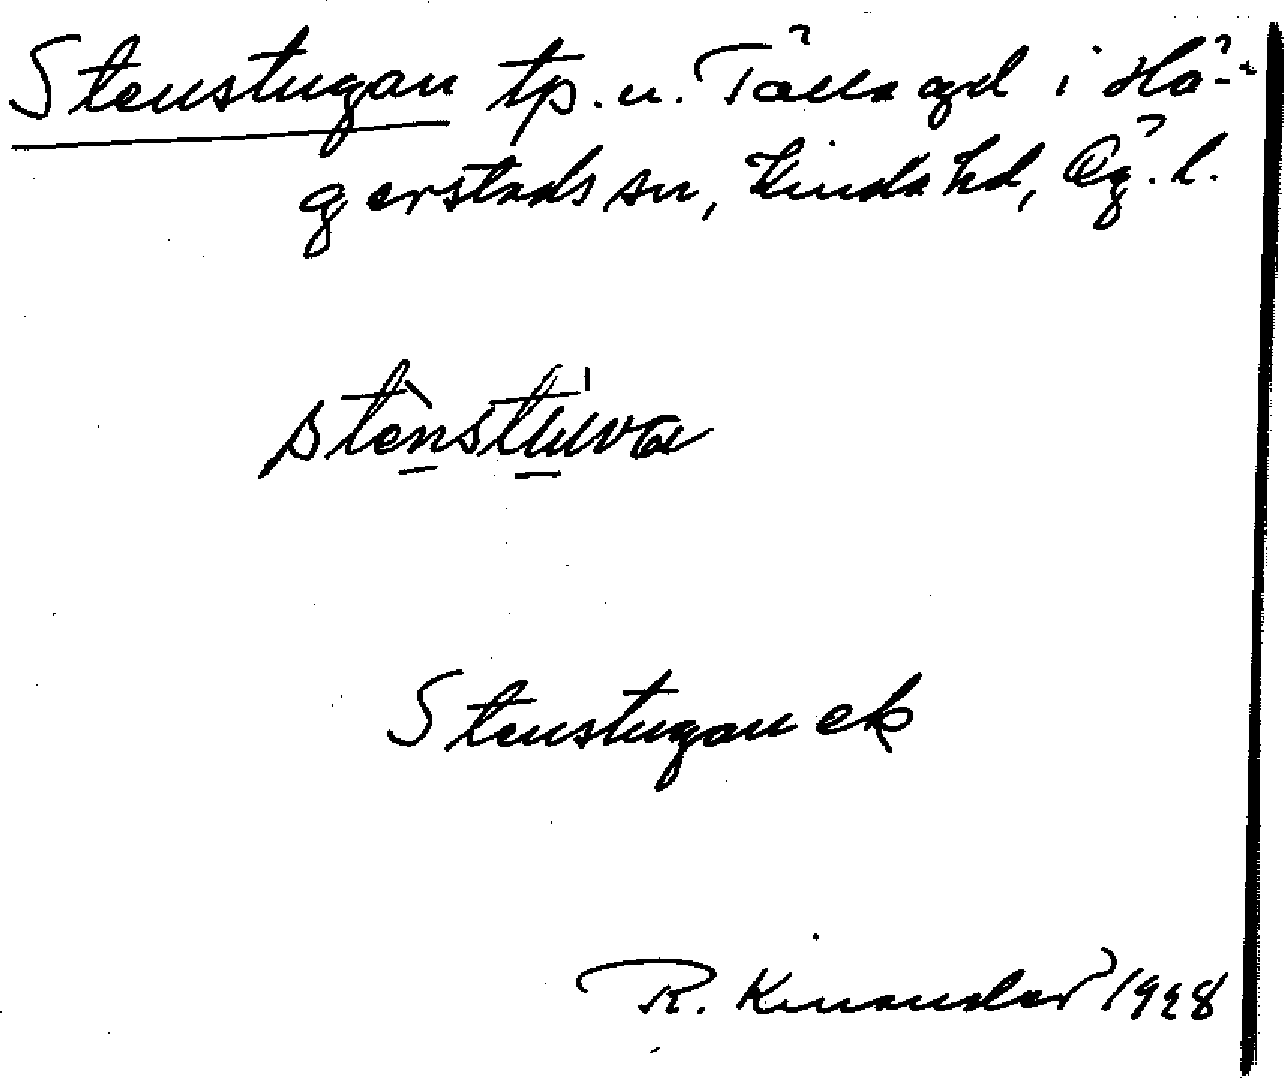 Stenstugan tp. u. Tälla gd i Hä-
gerstads sn, Kinda hd, Ög. l.
stènstúva
Stenstugan ek
R. Kinander 1928